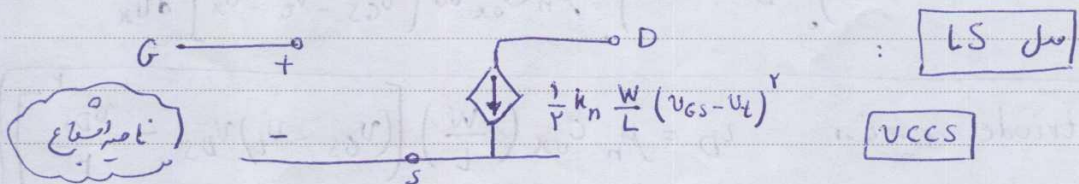 مدل LS :
G + D
½ kₙ W/L (υGS - υt)²
ناحیه اشباع
-
S
VCCS